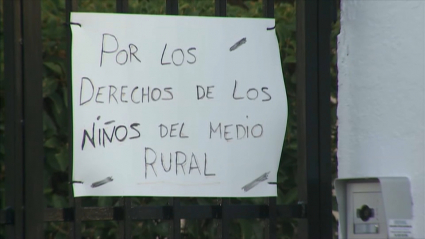 POR LOS
DERECHOS DE LOS
NIÑOS DEL MEDIO
RURAL